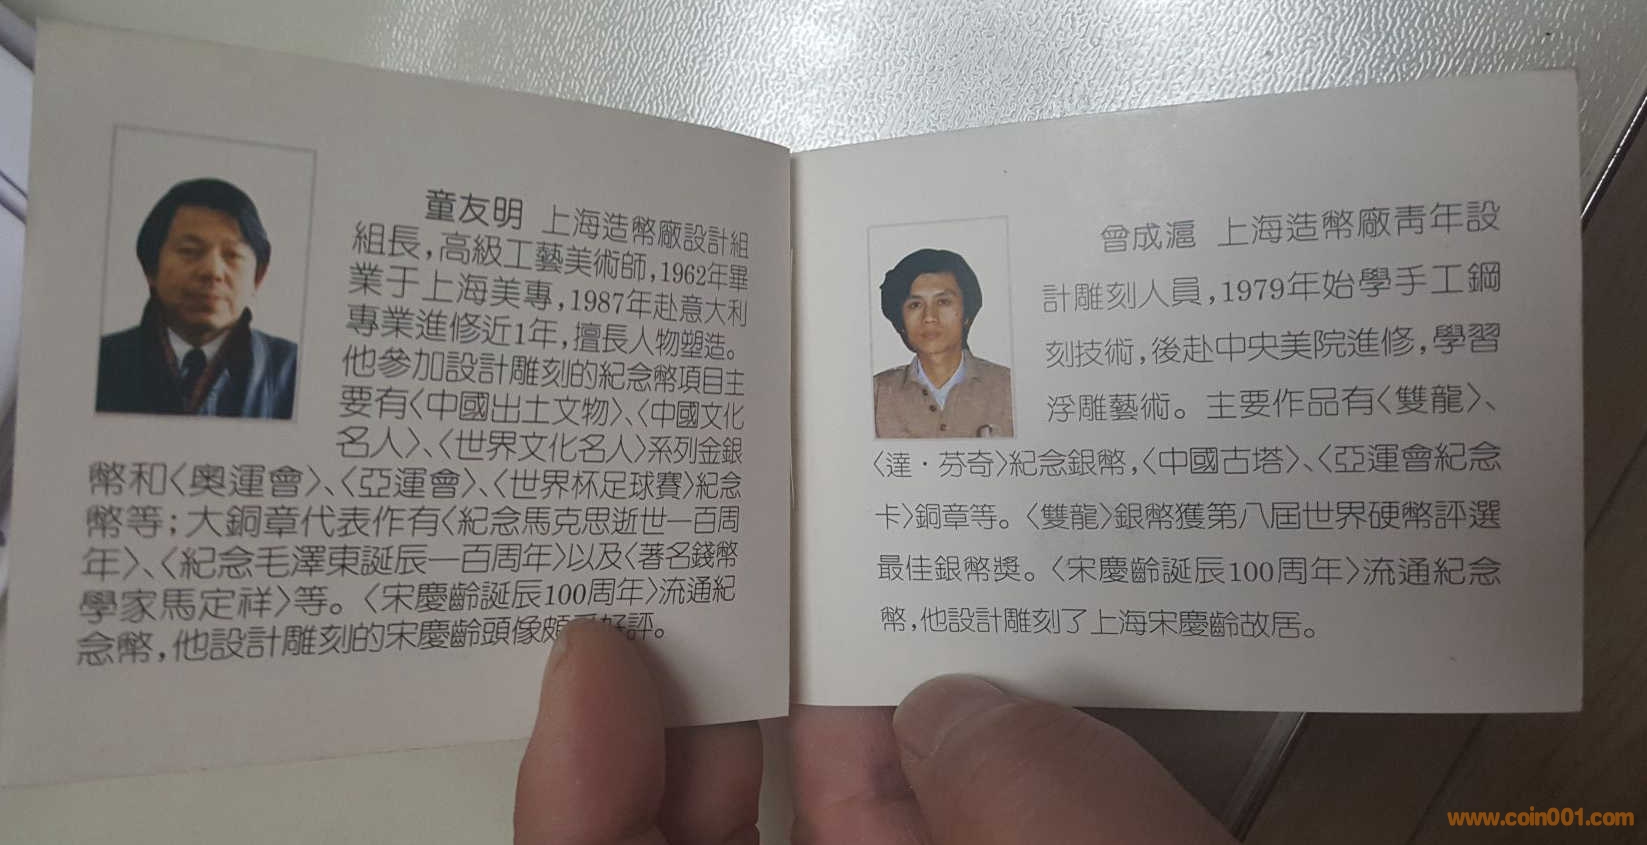 童友明 上海造幣廠設計組
組長，高級工藝美術師，1962年畢
業于上海美專，1987年赴意大利
專業進修近1年，擅長人物塑造。
他參加設計雕刻的紀念幣項目主
要有〈中國出土文物〉、〈中國文化
名人〉、〈世界文化名人〉系列金銀
幣和〈奧運會〉、〈亞運會〉、〈世界杯足球賽〉紀念
幣等；大銅章代表作有〈紀念馬克思逝世一百周
年〉、〈紀念毛澤東誕辰一百周年〉以及〈著名錢幣
學家馬定祥〉等。〈宋慶齡誕辰100周年〉流通紀
念幣，他設計雕刻的宋慶齡頭像頗好評。
曾成滬 上海造幣廠靑年設
計雕刻人員，1979年始學手工鋼
刻技術，後赴中央美院進修，學習
浮雕藝術。主要作品有〈雙龍〉、
〈達·芬奇〉紀念銀幣，〈中國古塔〉、〈亞運會紀念
卡〉銅章等。〈雙龍〉銀幣獲第八屆世界硬幣評選
最佳銀幣獎。〈宋慶齡誕辰100周年〉流通紀念
幣，他設計雕刻了上海宋慶齡故居。
www.coin001.com